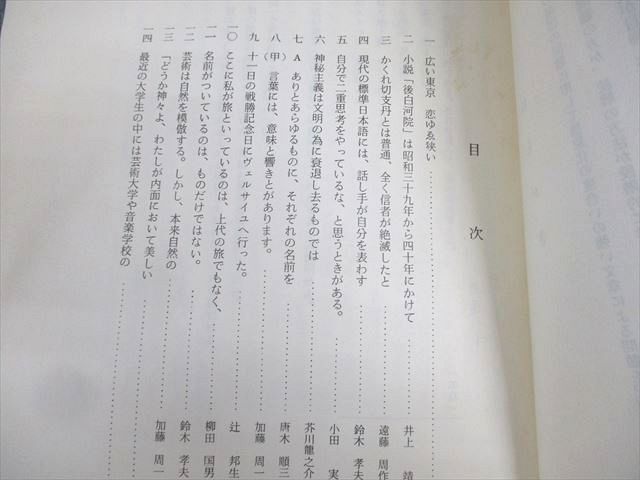 目次
一 広い東京 恋ゆゑ狭い
二 小説「後白河院」は昭和三十九年から四十年にかけて 井上 靖
三 かくれ切支丹とは普通、全く信者が絶滅したと 遠藤 周作
四 現代の標準日本語には、話し手が自分を表わす 鈴木 孝夫
五 自分で二重思考をやっているな、と思うときがある。 小田 実
六 神秘主義は文明の為に衰退し去るものでは 芥川龍之介
七 A ありとあらゆるものに、それぞれの名前を 唐木 順三
八 (甲) 言葉には、意味と響きとがあります。 加藤 周一
九 十一日の戦勝記念日にヴェルサイユへ行った。 辻 邦生
一〇 ここに私が旅といっているのは、上代の旅でもなく、 柳田 国男
一一 名前がついているのは、ものだけではない。 鈴木 孝夫
一二 芸術は自然を模倣する。しかし、本来自然の 加藤 周一
一三 「どうか神々よ、わたしが内面において美しい
一四 最近の大学生の中には芸術大学や音楽学校の